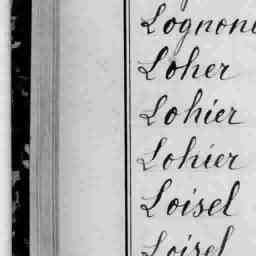 Lognone
Loher
Lohier
Lohier
Loisel
Loisel